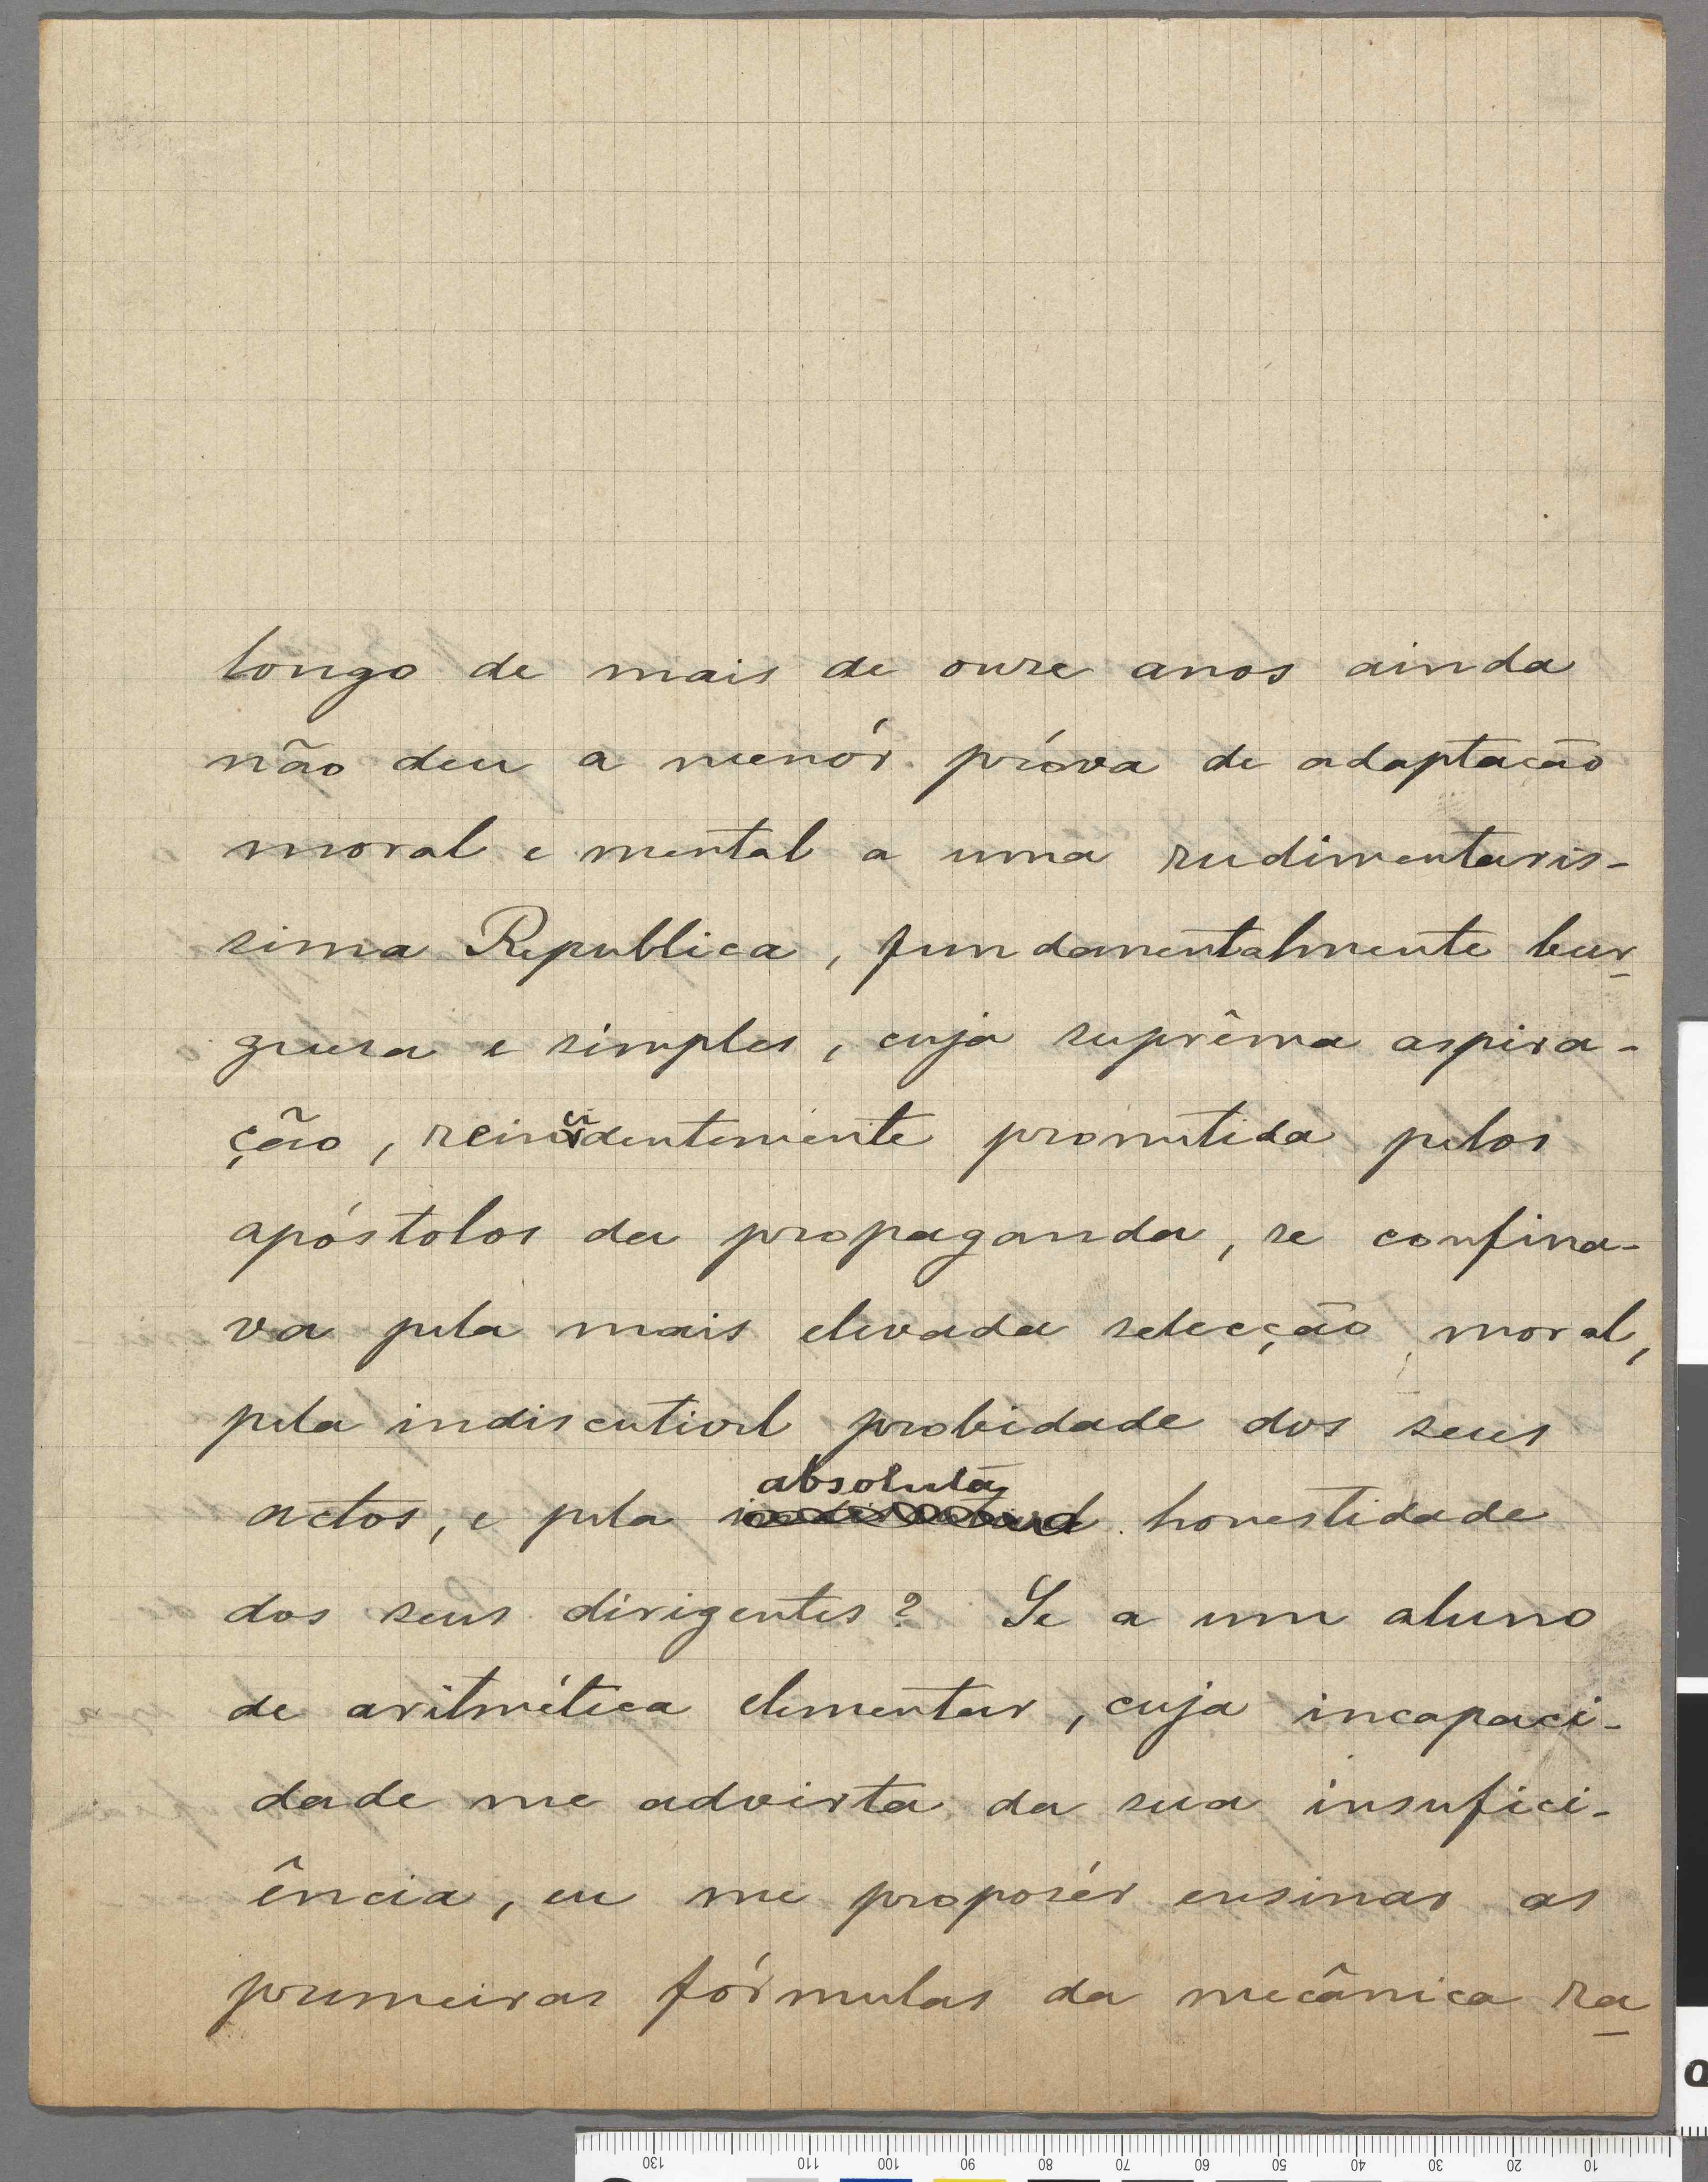 longo de mais de onze anos ainda
não deu a menór próva de adaptação
moral e mental a uma rudimentaris-
sima Republica, fundamentalmente bur-
guesa e simples, cuja suprêma aspira-
ção, reincidentemente prometida pelos
apóstolos da propaganda, se confina-
va pela mais elevada selecção moral,
pela indiscutivel probidade dos seus
absoluta
actos, e pela indiscutivel honestidade
dos seus dirigentes? Se a um aluno
de aritmética elementar, cuja incapaci-
dade me advirta da sua insufici-
ência, eu me proposér ensinar as
primeiras fórmulas da mecânica ra-
130 110 100 90 80 70 60 50 40 30 20 10